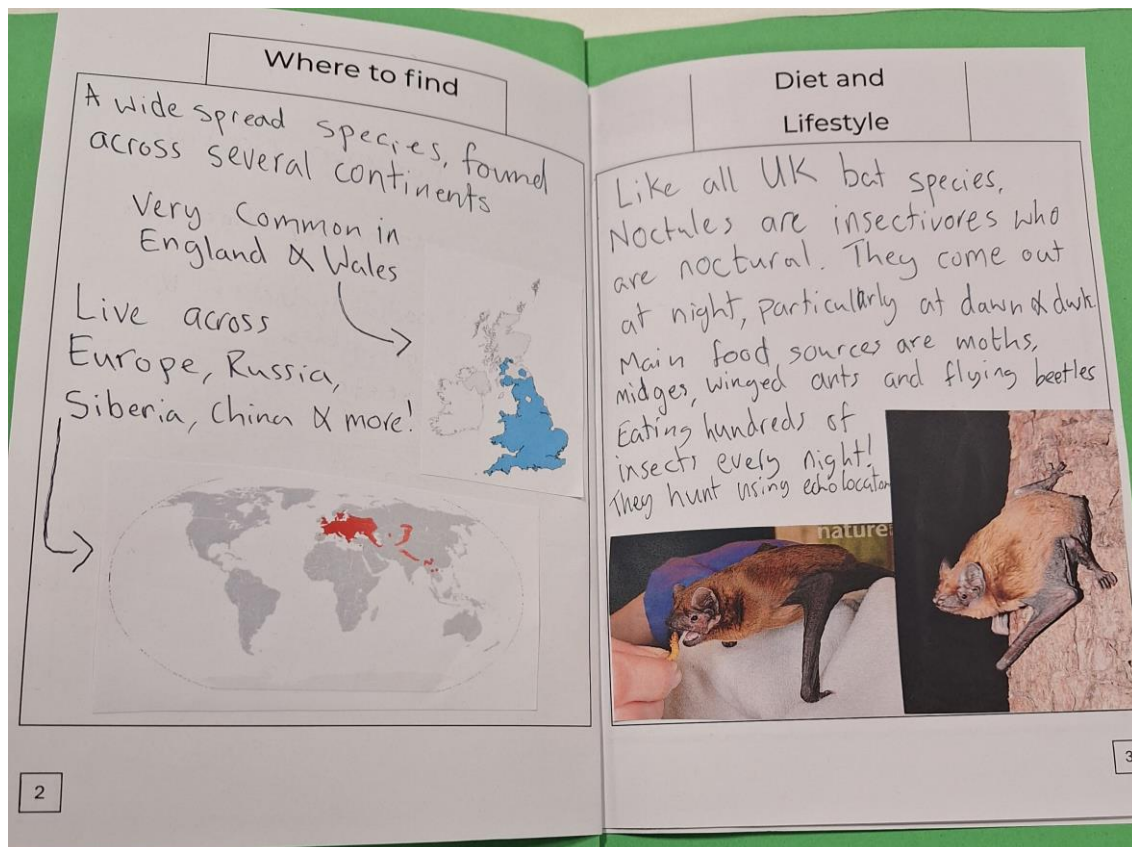 Where to find
A wide spread species, found
across several continents
Very Common in
England & Wales
Live across
Europe, Russia,
Siberia, China & more!
2
Diet and
Lifestyle
Like all UK bat species,
Noctules are insectivores who
are noctural. They come out
at night, particularly at dawn & dusk.
Main food sources are moths,
midges, winged ants and flying beetles
Eating hundreds of
insects every night!
They hunt using echolocation
nature
3